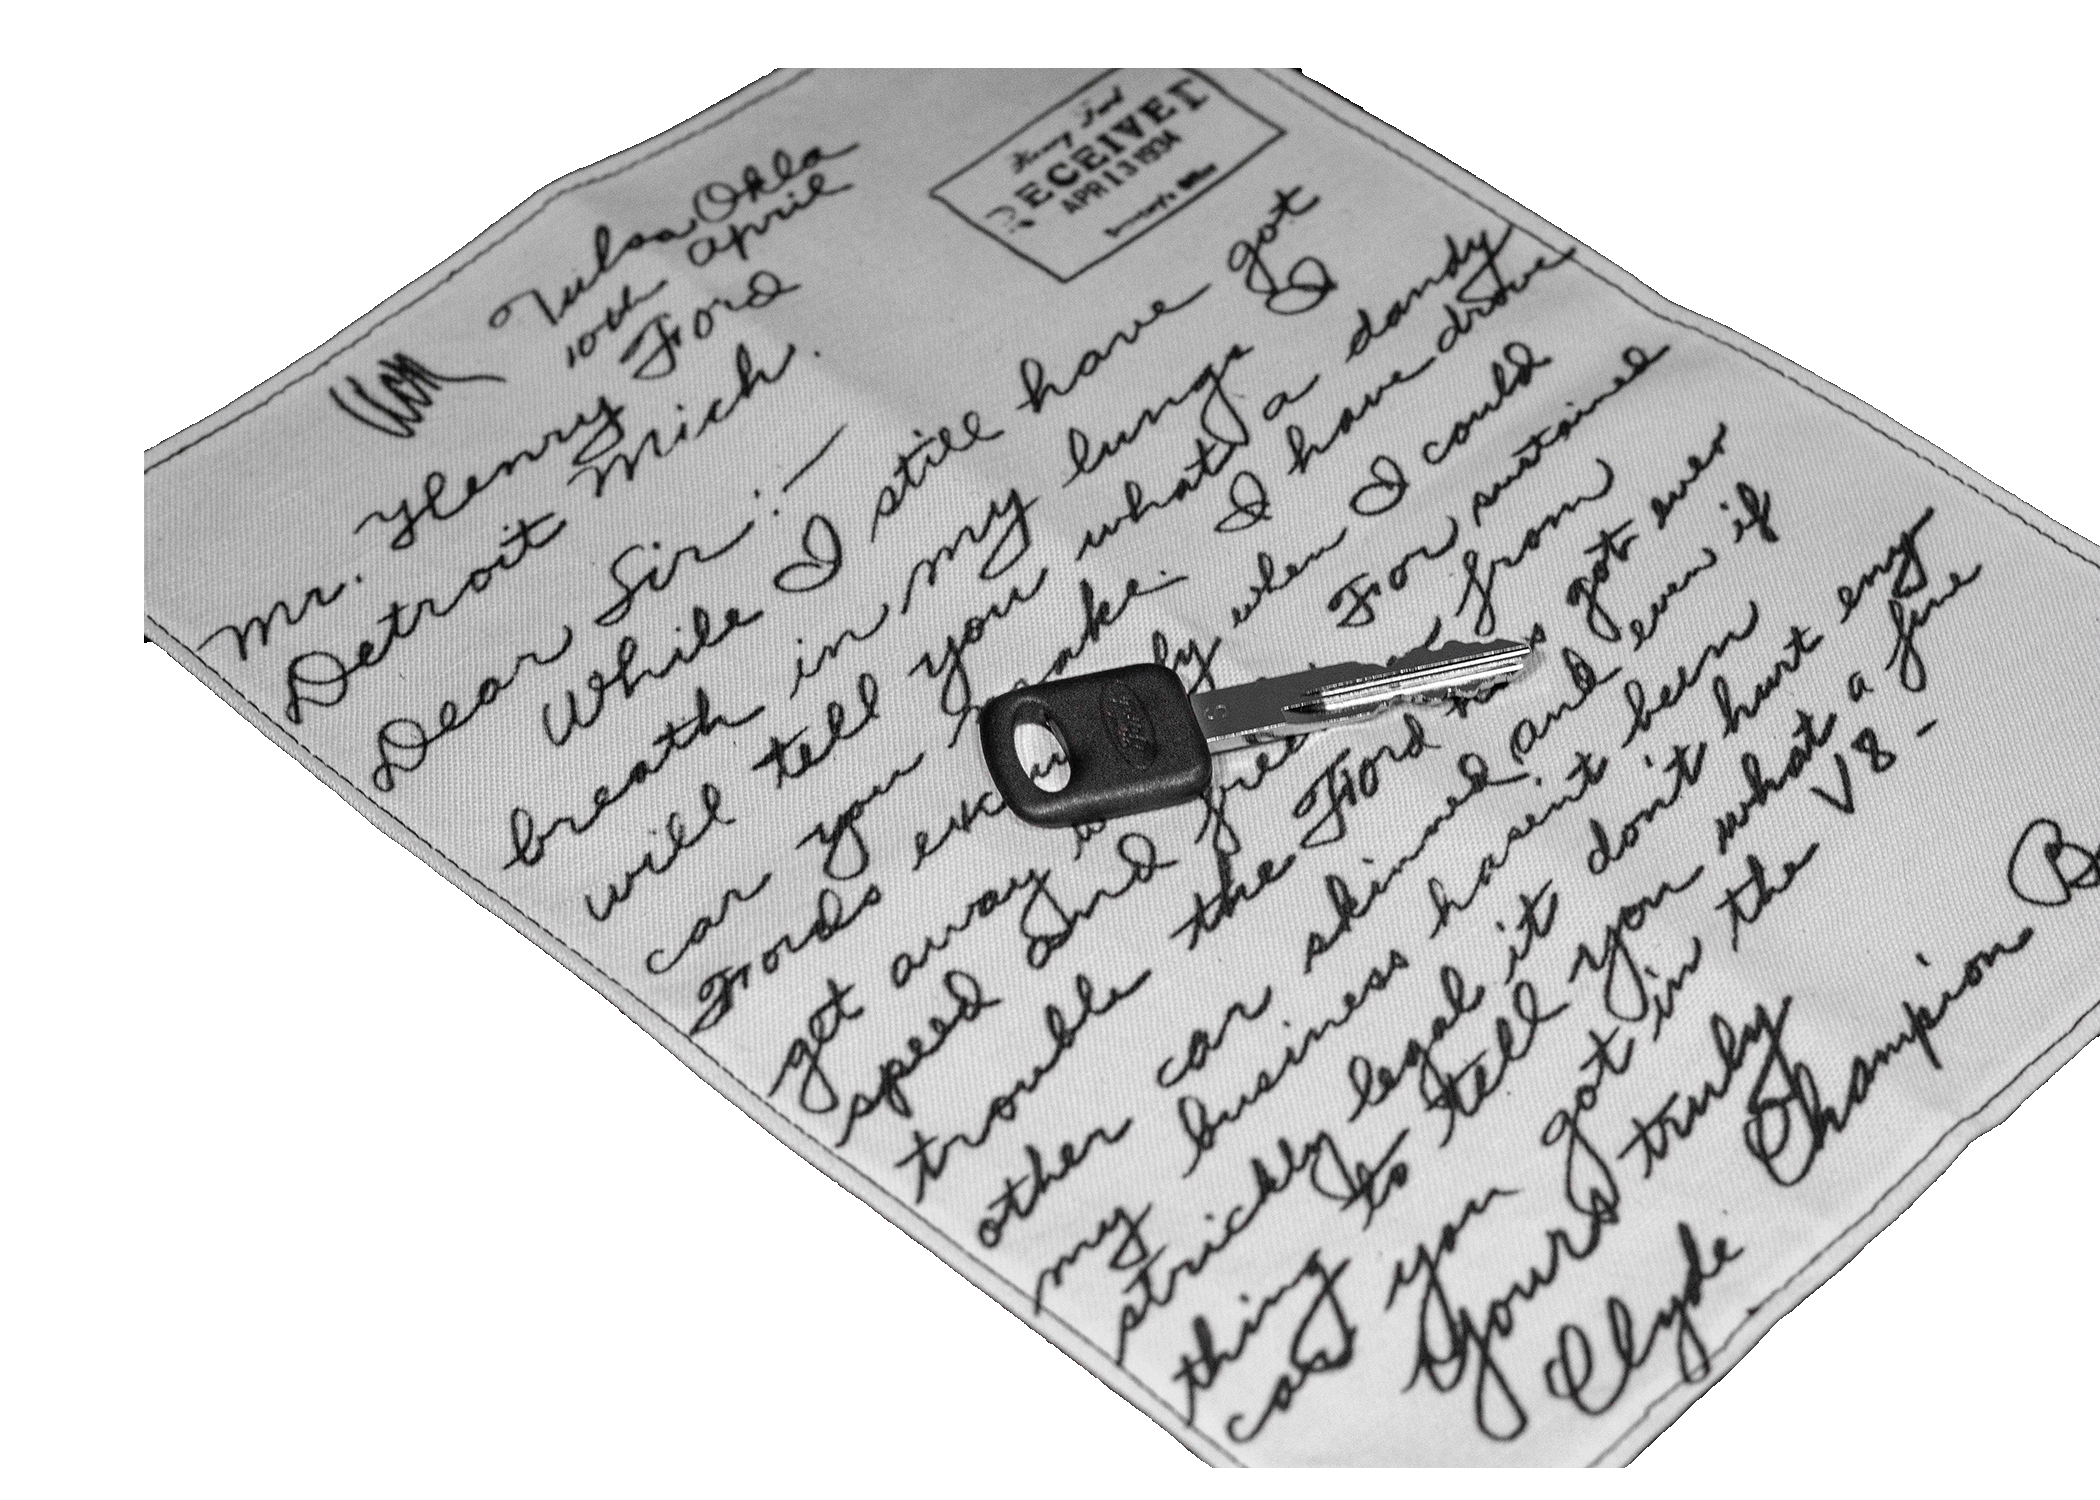 Tulsa Okla
10th April
Mr. Henry Ford
Detroit Mich.
Henry Ford
RECEIVED
APR 13 1934
Secretary's Office
Dear Sir:—
While I still have got
breath in my lungs I
will tell you what a dandy
car you make. I have drove
Fords when I could
get away For sustained
speed and from
trouble the Ford got ever
other car skinned and even if
my business hasen't been
strickly legal it don't hurt eny
thing to tell you what a fine
car you got in the V8 -
Yours truly
Clyde Champion